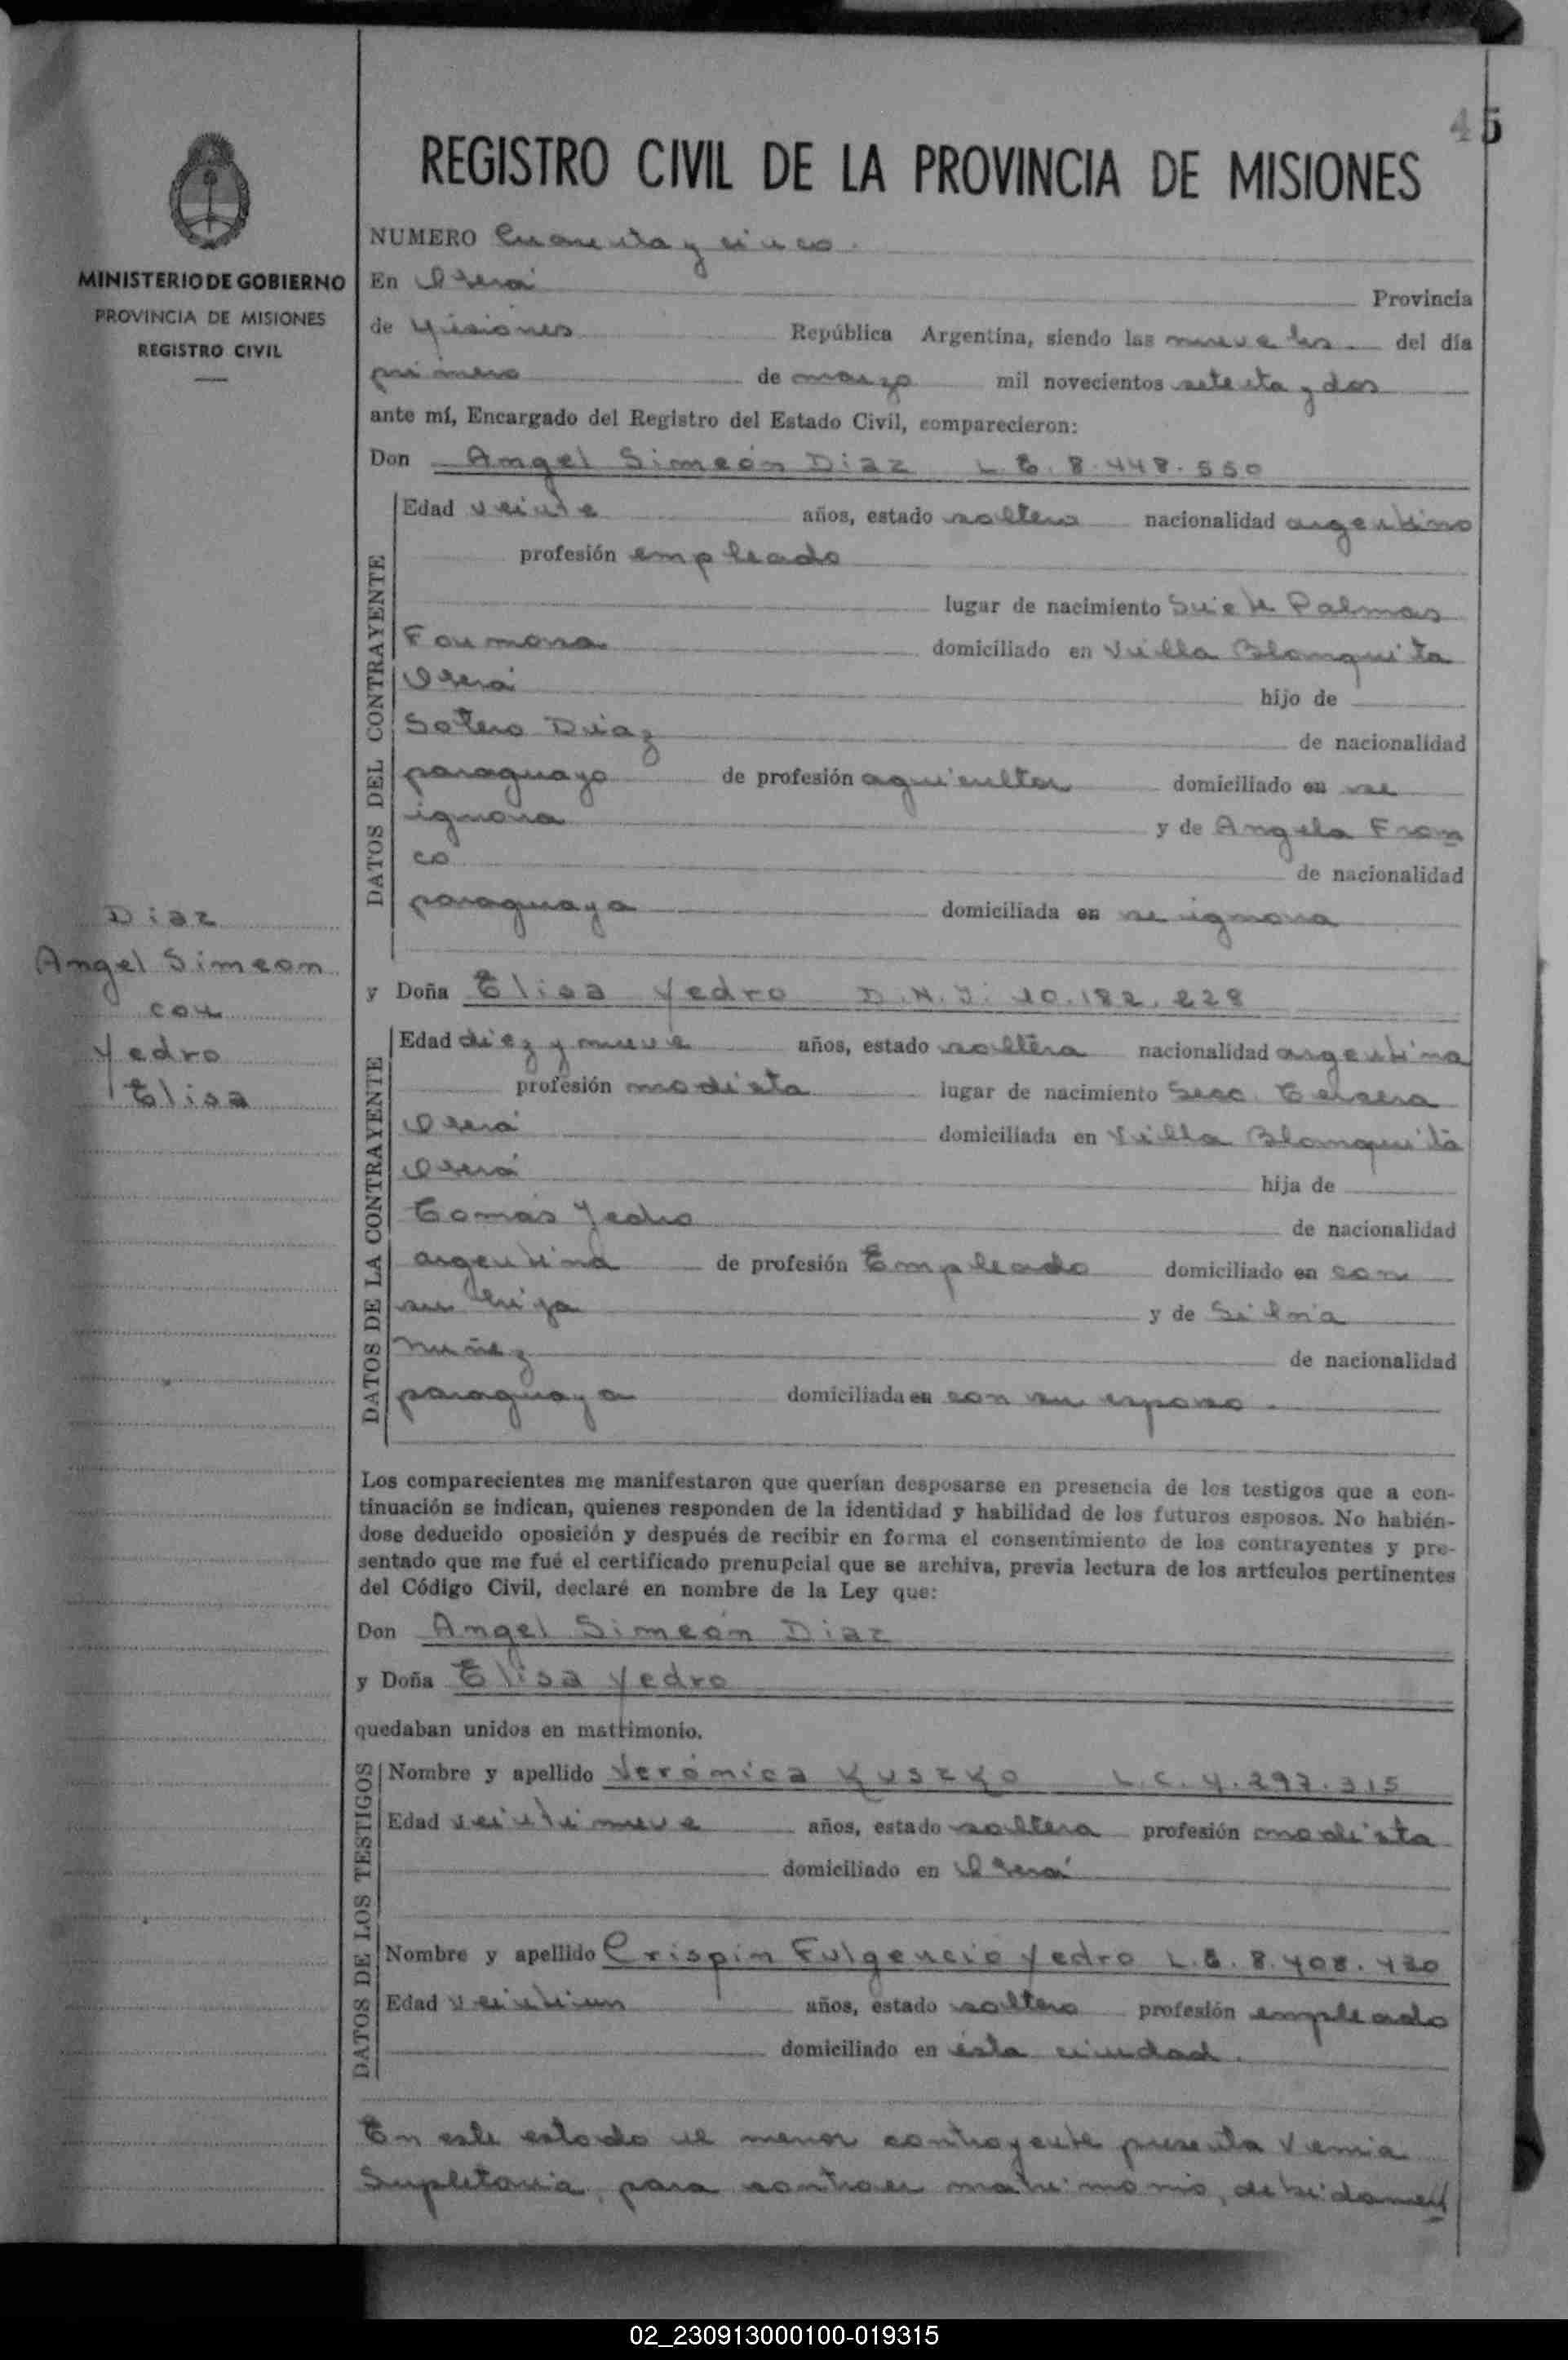 45
REGISTRO CIVIL DE LA PROVINCIA DE MISIONES
MINISTERIO DE GOBIERNO
PROVINCIA DE MISIONES
REGISTRO CIVIL
NUMERO Cuarenta y cinco.
En Oberá Provincia
de Misiones República Argentina, siendo las nueve hs del día
primero de marzo mil novecientos setenta y dos
ante mí, Encargado del Registro del Estado Civil, comparecieron:
Don Angel Simeón Diaz L.E. 8.448.550
DATOS DEL CONTRAYENTE
Edad veinte años, estado soltero nacionalidad argentino
profesión empleado
lugar de nacimiento Siete Palmas
Formosa domiciliado en Villa Blanquita
Oberá hijo de
Sotero Diaz de nacionalidad
paraguayo de profesión agricultor domiciliado en se
ignora y de Angela Fran
co de nacionalidad
paraguaya domiciliada en se ignora
Diaz
Angel Simeon
con
Yedro
Elisa
y Doña Elisa Yedro D.N.I. 10.182.228
DATOS DE LA CONTRAYENTE
Edad diez y nueve años, estado soltera nacionalidad argentina
profesión modista lugar de nacimiento Secc. Tercera
Oberá domiciliada en Villa Blanquita
Oberá hija de
Tomás Yedro de nacionalidad
argentina de profesión Empleado domiciliado en con
su hija y de Silvia
Nuñez de nacionalidad
paraguaya domiciliada en con su esposo.
Los comparecientes me manifestaron que querían desposarse en presencia de los testigos que a con-
tinuación se indican, quienes responden de la identidad y habilidad de los futuros esposos. No habién-
dose deducido oposición y después de recibir en forma el consentimiento de los contrayentes y pre-
sentado que me fué el certificado prenupcial que se archiva, previa lectura de los artículos pertinentes
del Código Civil, declaré en nombre de la Ley que:
Don Angel Simeón Diaz
y Doña Elisa Yedro
quedaban unidos en matrimonio.
DATOS DE LOS TESTIGOS
Nombre y apellido Verónica Kuszko L.C. 4.297.315
Edad veintinueve años, estado soltera profesión modista
domiciliado en Oberá
Nombre y apellido Crispin Fulgencio Yedro L.E. 8.408.420
Edad veintiun años, estado soltero profesión empleado
domiciliado en ésta ciudad.
En este estado el menor contrayente presenta Venia
Supletoria, para contraer matrimonio, debidamen
02_230913000100-019315